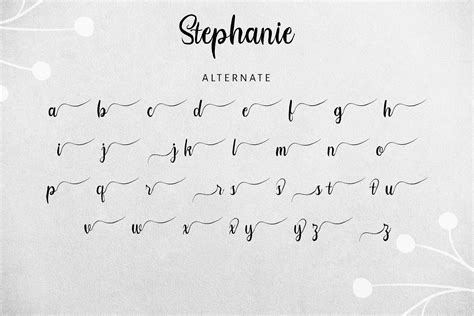 Stephanie
ALTERNATE
a b c d e f g h
i j j k l m n o
p q r r s s s t t u
v w x x y y z z